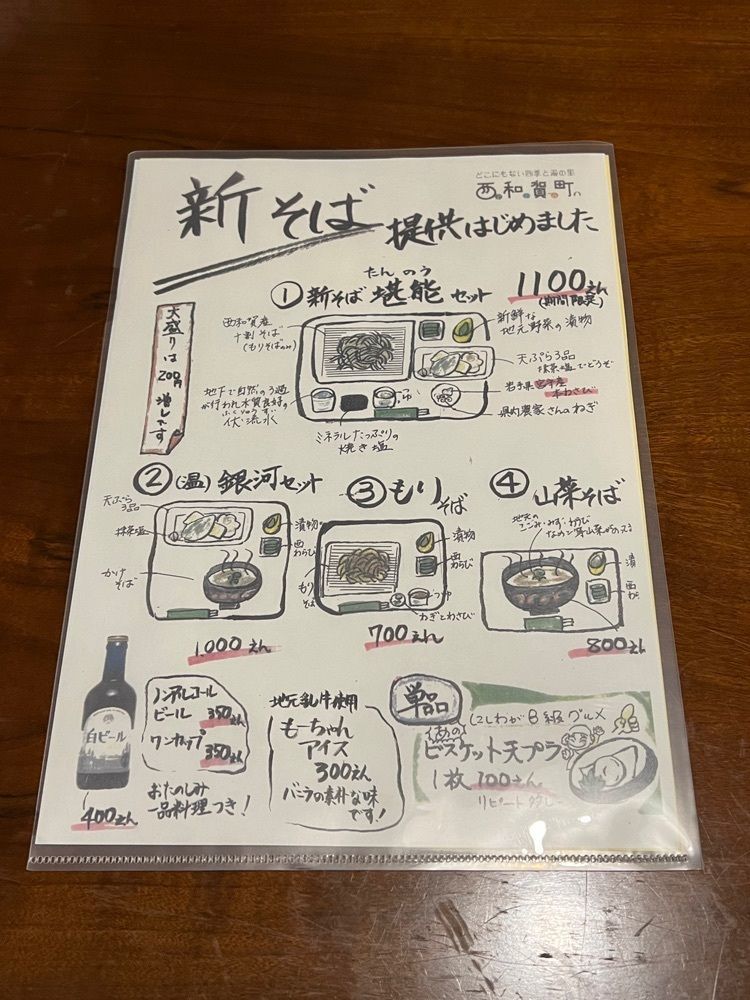 どこにもない四季と湯の里
西和賀町
新そば 提供はじめました
大盛りは200円増しです
たんのう
①新そば堪能セット 1100えん
(期間限定)
西和賀産
十割そば
(もりそばのみ)
新鮮な
地元野菜の漬物
天ぷら3品
抹茶塩でどうぞ
岩手県宮守産
本わさび
県内農家さんのねぎ
つゆ
地下で自然のろ過
が行われ水質良好の
ふくりゅうすい
伏流水
ミネラルたっぷりの
焼き塩
②(温)銀河セット
天ぷら
3品
抹茶塩
かけ
そば
漬物
西
わらび
1,000えん
③もりそば
漬物
西
わらび
もり
そば
つゆ
ねぎとわさび
700えん
④山菜そば
地元の
こごみ・みず・わらび
漬
西
わ
800えん
白ビール
400えん
ノンアルコール
ビール 350えん
ワンカップ
350えん
おたのしみ
一品料理つき!
地元乳牛使用
もーちゃん
アイス
300えん
バニラの素朴な味
です!
単品
にしわがB級グルメ
(あの)
ビスケット天プラ
1枚100えん